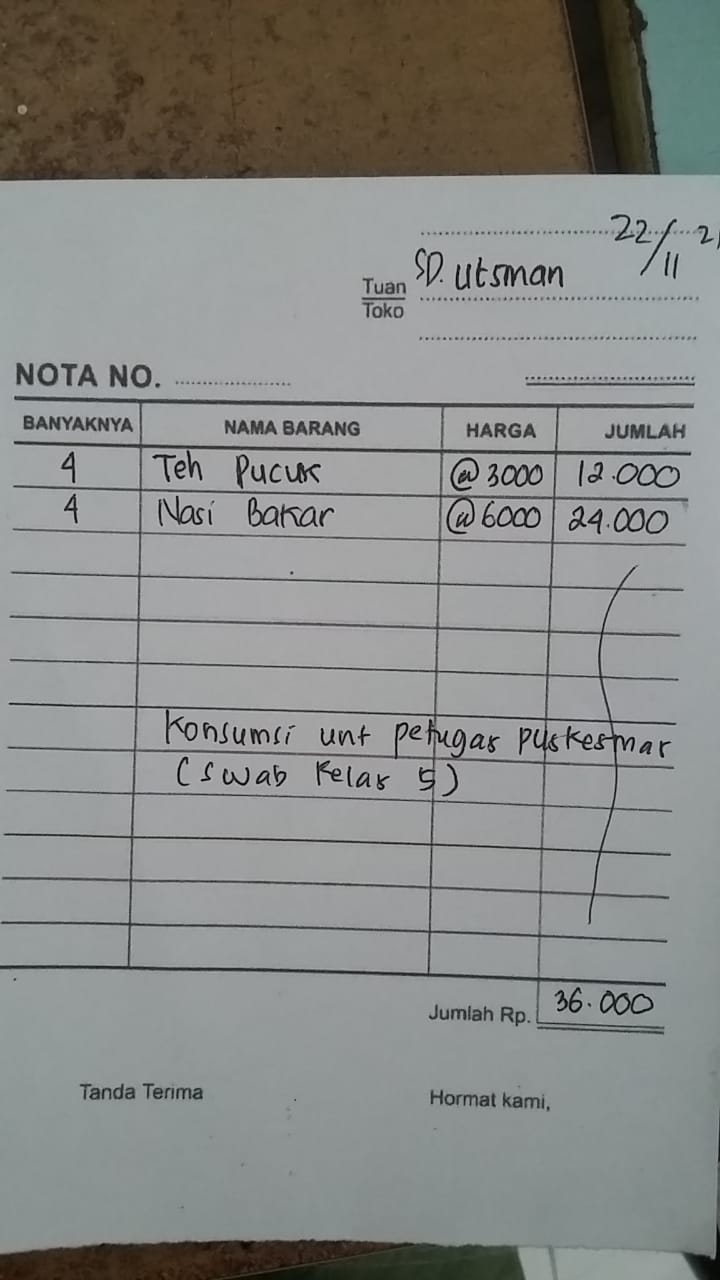 22/11 21
SD. Utsman
Tuan
Toko
NOTA NO.
BANYAKNYA NAMA BARANG HARGA JUMLAH
4 Teh Pucuk @ 3000 12.000
4 Nasi Bakar @ 6000 24.000
Konsumsi unt petugas puskesmas
(swab kelas 5)
Jumlah Rp. 36.000
Tanda Terima Hormat kami,